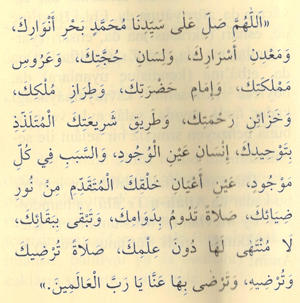 «اَللّٰهُمَّ صَلِّ عَلٰى سَيِّدِنَا مُحَمَّدٍ بَحْرِ أَنْوَارِكَ،
وَمَعْدِنِ أَسْرَارِكَ، وَلِسَانِ حُجَّتِكَ، وَعَرُوسِ
مَمْلَكَتِكَ، وَإِمَامِ حَضْرَتِكَ، وَطِرَازِ مُلْكِكَ،
وَخَزَائِنِ رَحْمَتِكَ، وَطَرِيقِ شَرِيعَتِكَ الْمُتَلَذِّذِ
بِتَوْحِيدِكَ، إِنْسَانِ عَيْنِ الْوُجُودِ، وَالسَّبَبِ فِي كُلِّ
مَوْجُودٍ، عَيْنِ أَعْيَانِ خَلْقِكَ الْمُتَقَدِّمِ مِنْ نُورِ
ضِيَائِكَ، صَلَاةً تَدُومُ بِدَوَامِكَ، وَتَبْقَى بِبَقَائِكَ،
لَا مُنْتَهٰى لَهَا دُونَ عِلْمِكَ، صَلَاةً تُرْضِيكَ
وَتُرْضِيهِ، وَتَرْضٰى بِهَا عَنَّا يَا رَبَّ الْعَالَمِينَ.»